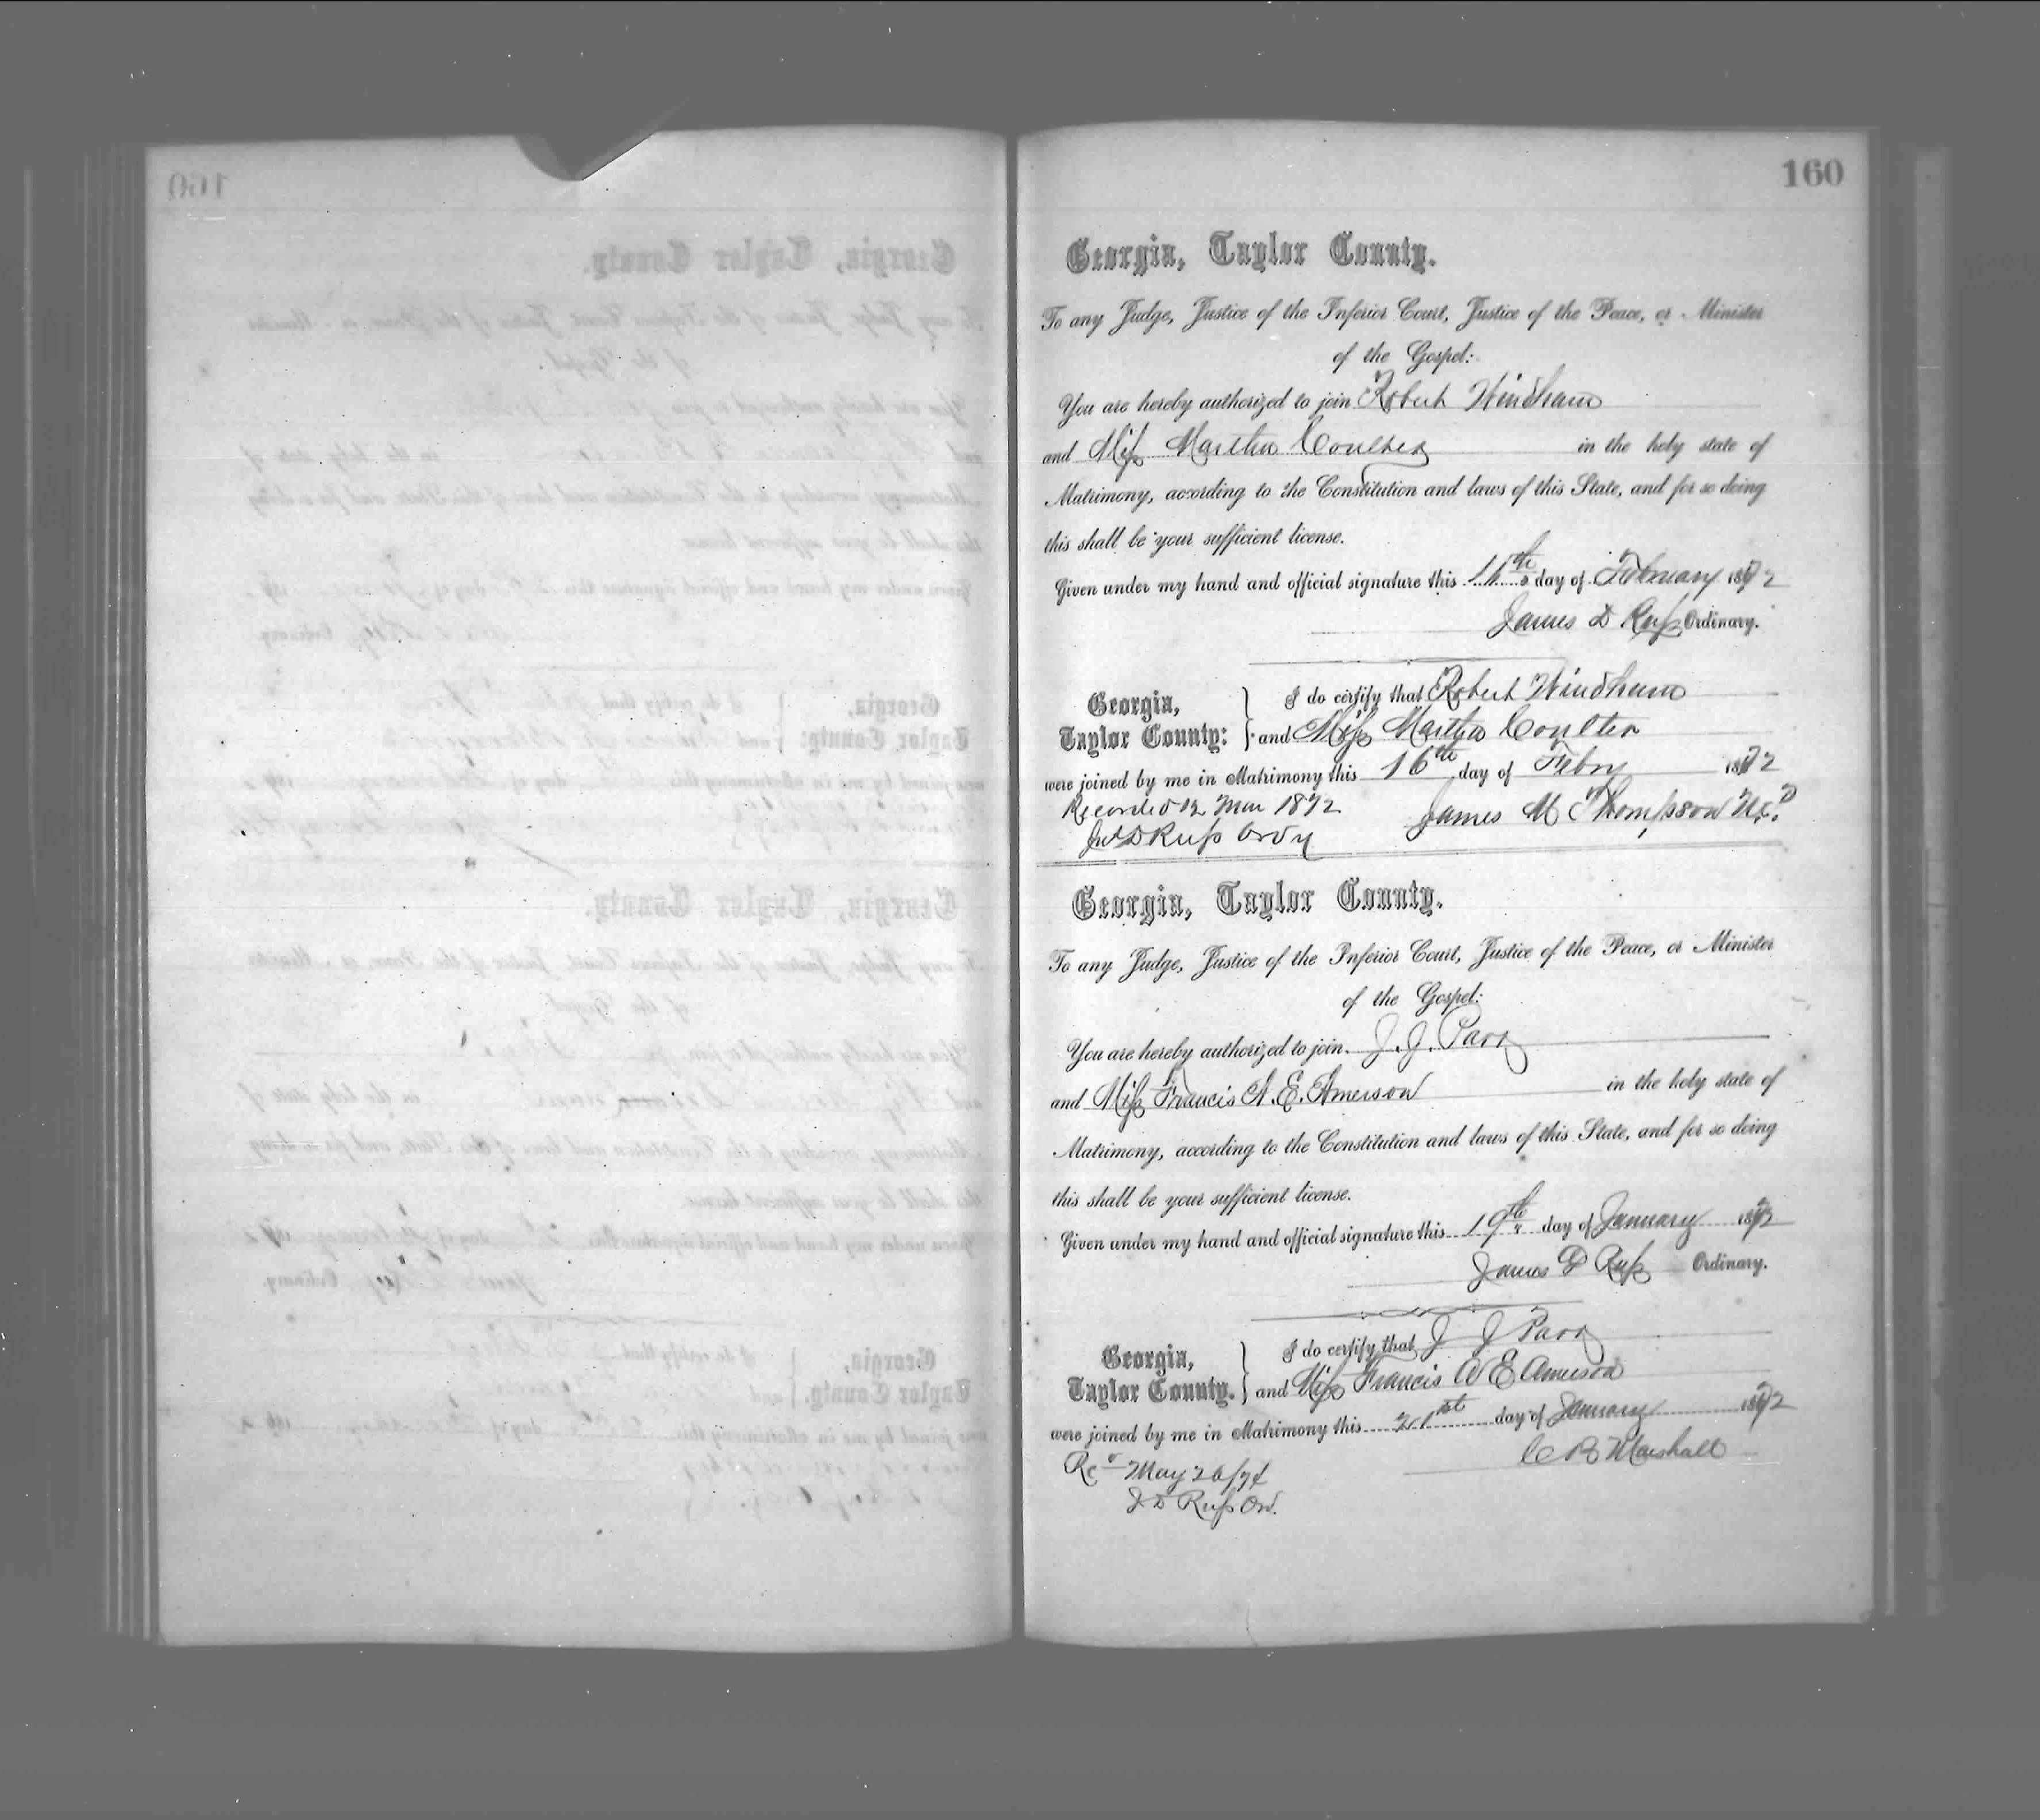 160
Georgia, Taylor County.
To any Judge, Justice of the Inferior Court, Justice of the Peace, or Minister
of the Gospel:
You are hereby authorized to join Robert Windham
and Miss Martha Coulter in the holy state of
Matrimony, acording to the Constitution and laws of this State, and for so doing
this shall be your sufficient license.
Given under my hand and official signature this day of February 1872
James D Russ Ordinary.
Georgia, Taylor County: I do certify that Robert Windham
and Miss Martha Coulter
were joined by me in Matrimony this 16th day of Febry 1872
Recorded 12 Mar 1872 James M Thompson
Jas D Russ Ordy
Georgia, Taylor County.
To any Judge, Justice of the Inferior Court, Justice of the Peace, or Minister
of the Gospel:
You are hereby authorized to join J. J. Parr
and Miss Francis A. E. Amerson in the holy state of
Matrimony, according to the Constitution and laws of this State, and for so doing
this shall be your sufficient license.
Given under my hand and official signature this 19th day of January 1872
James D Russ Ordinary.
Georgia, Taylor County. I do certify that J J Parr
and Miss Francis A E Amerson
were joined by me in Matrimony this 21st day of January 1872
C B Marshall
Recd May 26/74
J D Russ Ord.